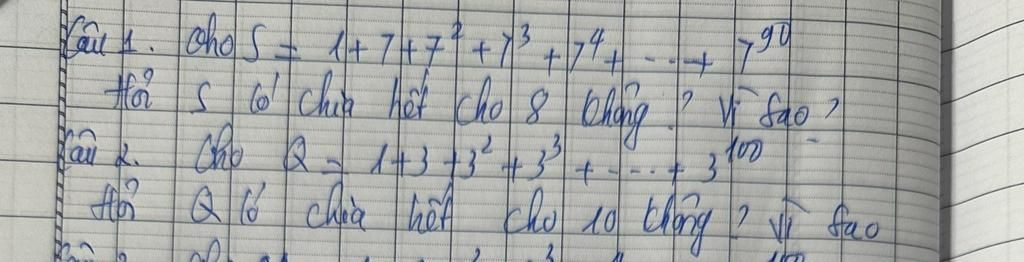 Câu 1. Cho S = 1 + 7 + 7² + 7³ + 7⁴ + ... + 7⁹⁰
Hỏi S có chia hết cho 8 không? Vì sao?
Câu 2. Cho Q = 1 + 3 + 3² + 3³ + ... + 3¹⁰⁰
Hỏi Q có chia hết cho 10 không? Vì sao